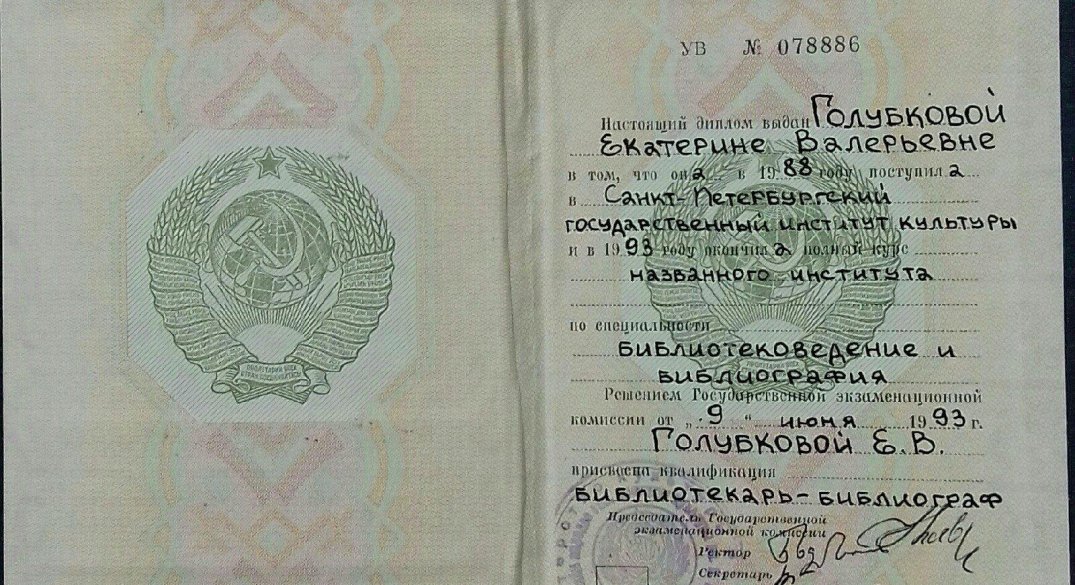 УВ № 078886
Настоящий диплом выдан Голубковой
Екатерине Валерьевне
в том, что она в 1988 году поступила
в Санкт-Петербургский
государственный институт культуры
и в 1993 году окончила полный курс
названного института
по специальности
библиотековедение и
библиография
Решением Государственной экзаменационной
комиссии от „9“ июня 1993 г.
Голубковой Е.В.
присвоена квалификация
библиотекарь-библиограф
Председатель Государственной
экзаменационной комиссии
Ректор
Секретарь